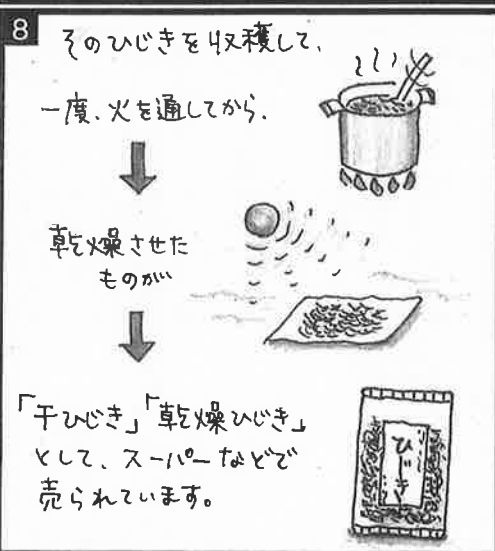 8
そのひじきを収穫して、
一度、火を通してから、
乾燥させた
ものが
「干ひじき」「乾燥ひじき」
として、スーパーなどで
売られています。
ひじき